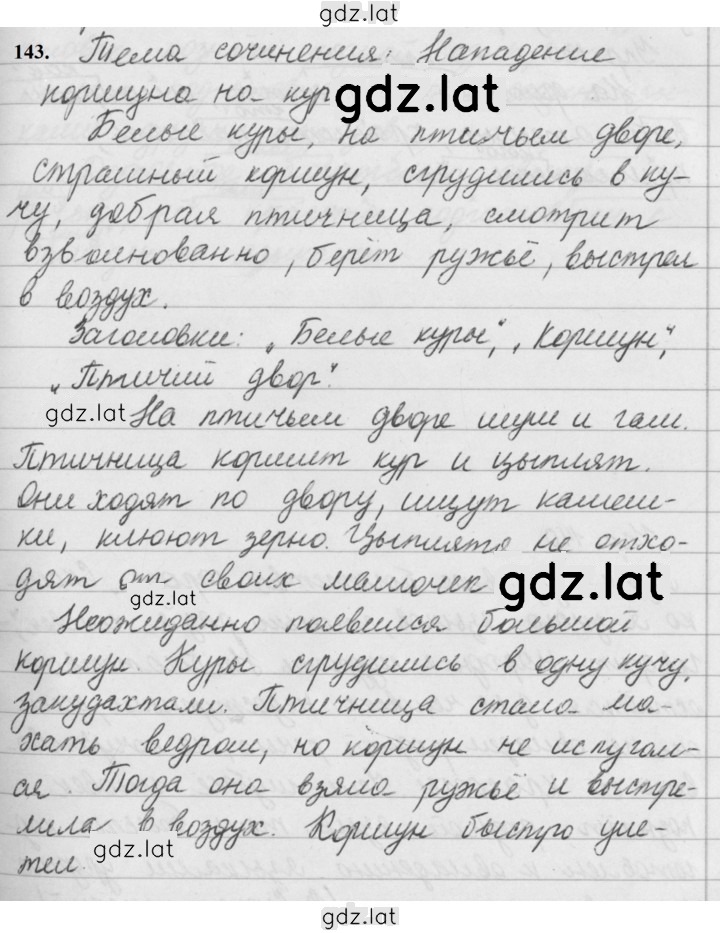 gdz.lat
143. Тема сочинения: Нападение
коршуна на кур gdz.lat
Белые куры, на птичьем дворе,
страшный коршун, сгрудились в ку-
чу, добрая птичница, смотрит
взволнованно, берёт ружьё, выстрел
в воздух.
Заголовки: „Белые куры", „Коршун",
„Птичий двор".
gdz.lat На птичьем дворе шум и гам.
Птичница кормит кур и цыплят.
Они ходят по двору, ищут камеш-
ки, клюют зерно. Цыплята не отхо-
дят от своих мамочек gdz.lat
gdz.lat
Неожиданно появился большой
коршун. Куры сгрудились в одну кучу,
закудахтали. Птичница стала ма-
хать ведром, но коршун не испугал-
ся. Тогда она взяла ружьё и выстре-
лила в воздух. Коршун быстро уле-
тел.
gdz.lat
gdz.lat